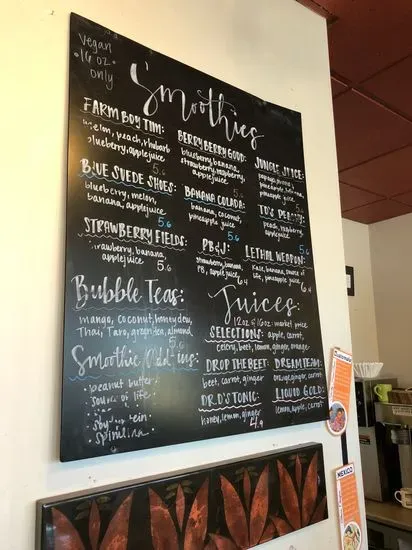 vegan
16 oz.
only
Smoothies
FARM BOY TIM:
melon, peach, rhubarb
blueberry, apple juice
BERRY BERRY GOOD:
blueberry, banana,
strawberry, raspberry,
apple juice
JUNGLE JUICE:
pineapple juice
BLUE SUEDE SHOES:
5.6
blueberry, melon,
banana, apple juice
BANANA COLADA:
banana, coconut,
pineapple juice
5.6
TD'S
peach, raspberry,
apple juice
STRAWBERRY FIELDS:
5.6
strawberry, banana,
apple juice
5.6
PB&J:
5.6
strawberry, banana,
PB, apple juice
6.4
LETHAL WEAPON:
5.6
kale, banana, source of
life, pineapple juice 6.4
Bubble Teas:
mango, coconut, honeydew,
Thai, Taro, green tea, almond
5.6
Smoothie Add-ins:
peanut butter
source of life
soy protein
spirulina
Juices:
12 oz/16 oz: market price
SELECTIONS: apple, carrot,
celery, beet, lemon, ginger, orange
DROP THE BEET:
beet, carrot, ginger
DREAM TEAM:
orange, ginger, carrot
DR. D'S TONIC:
honey, lemon, ginger
4.9
LIQUID GOLD:
lemon, apple, carrot
GUATEMALA
MEXICO